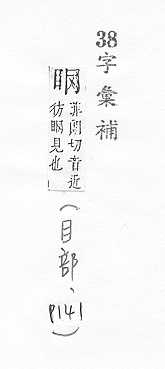 38字彙補
菲罔切音近
彷見也
(目部、
P141)